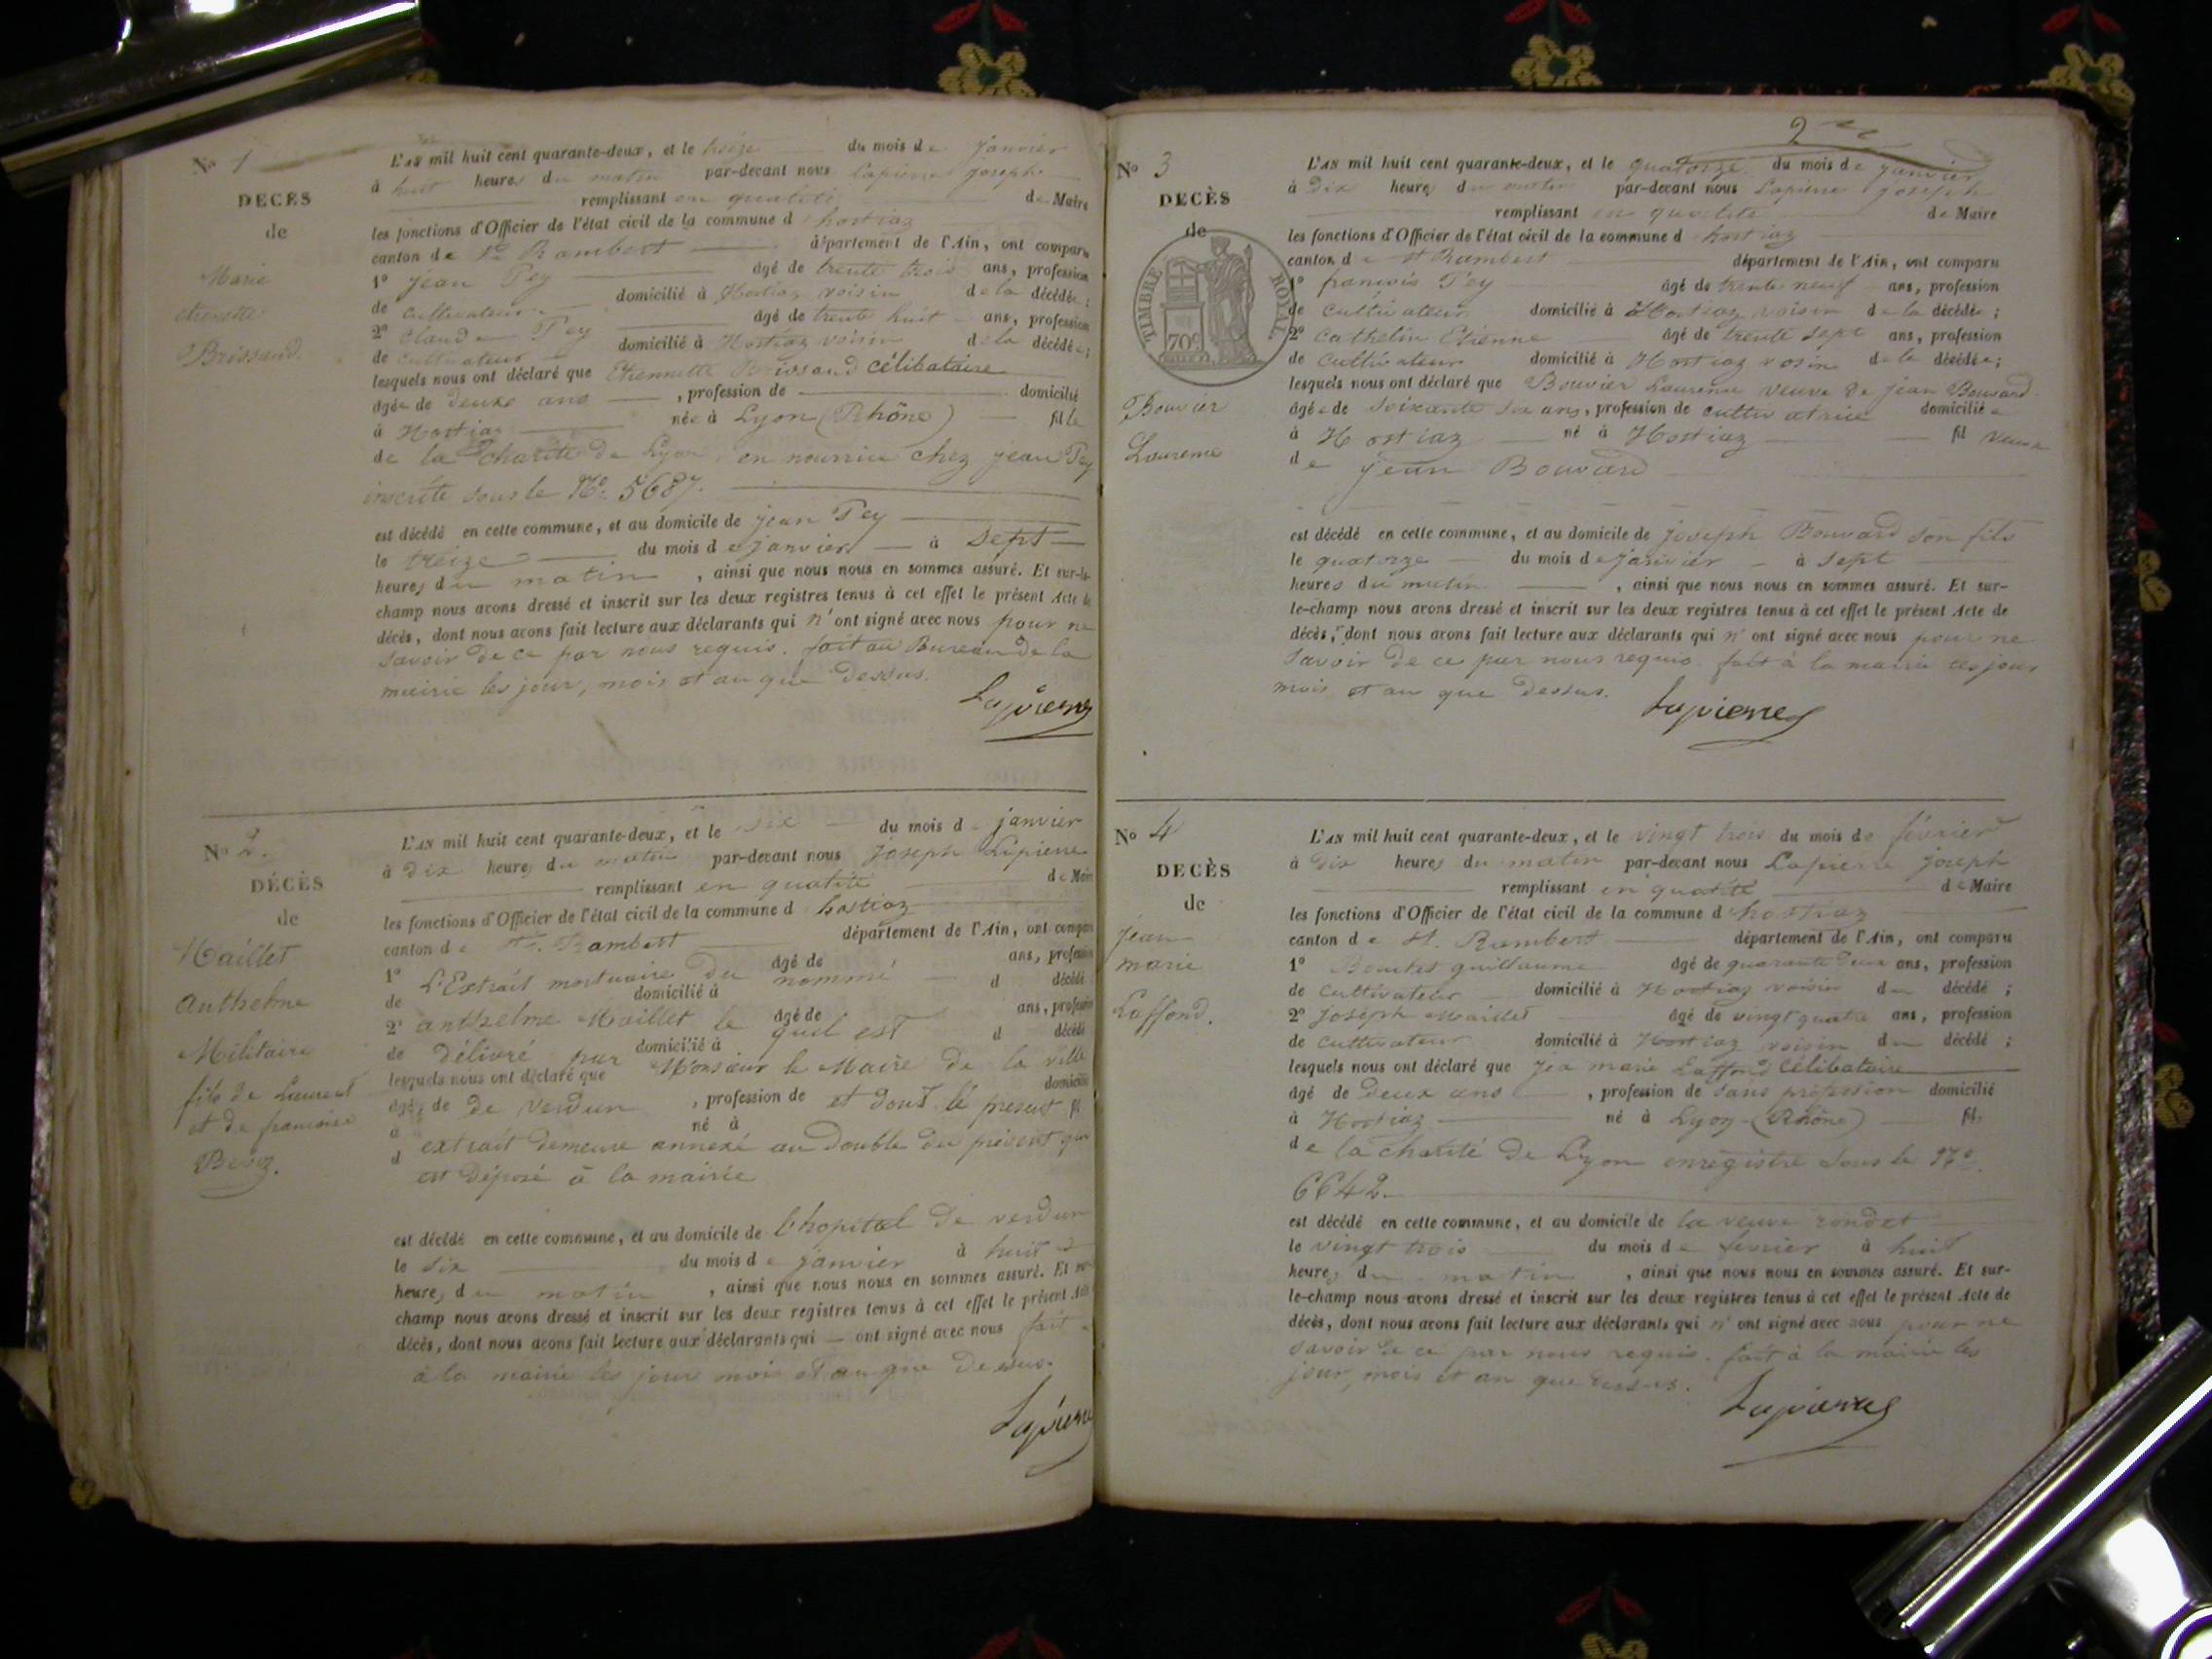 N° 1
DECÈS
de
Marie
etiennette
Brissand.
L'AN mil huit cent quarante-deux, et le treize du mois de janvier
à huit heures du matin par-devant nous Lapierre joseph
remplissant en qualité de Maire
les fonctions d'Officier de l'état civil de la commune d hostiaz
canton de St Rambert département de l'Ain, ont comparu
1° jean Pey âgé de trente trois ans, profession
de cultivateur domicilié à Hostiaz voisin de la décédée;
2° Claude Pey âgé de trente huit ans, profession
de cultivateur domicilié à Hostiaz voisin de la décédée;
lesquels nous ont déclaré que Etiennette Brissand célibataire
âgée de deux ans , profession de domicilié
à Hostiaz née à Lyon (Rhône) fille
de la charité de Lyon, en nourrice chez jean Pey
inscrite sous le N° 5687.
est décédé en cette commune, et au domicile de jean Pey
le treize du mois de janvier à sept
heures du matin , ainsi que nous nous en sommes assuré. Et sur-le-
champ nous avons dressé et inscrit sur les deux registres tenus à cet effet le présent Acte de
décès, dont nous avons fait lecture aux déclarants qui n'ont signé avec nous pour ne
savoir de ce par nous requis. fait au Bureau de la
mairie les jour, mois et an que dessus.
Lapierre
N° 2.
DÉCÈS
de
Maillet
anthelme
Militaire
fils de Laurent
et de francoise
L'AN mil huit cent quarante-deux, et le six du mois de janvier
à dix heures du matin par-devant nous joseph Lapierre
remplissant en qualité de Maire
les fonctions d'Officier de l'état civil de la commune d hostiaz
canton de St. Rambert département de l'Ain, ont comparu
1° L'Extrait mortuaire du nommé âgé de ans, profession
de domicilié à d décédé
2° anthelme Maillet le quel est âgé de ans, profession
de délivré par domicilié à d décédé
lesquels nous ont déclaré que Monsieur le Maire de la ville
âgé de de verdun , profession de et dont le present domicilié
à né à fil
d extrait demeure annexé au double du présent qui
est déposé à la mairie
est décédé en cette commune, et au domicile de l'hopital de verdun
le six du mois de janvier à huit
heures du matin , ainsi que nous nous en sommes assuré. Et sur-
champ nous avons dressé et inscrit sur les deux registres tenus à cet effet le présent Acte
décès, dont nous avons fait lecture aux déclarants qui — ont signé avec nous fait
à la mairie les jour mois et an que dessus.
Lapierre
N° 3
DECÈS
de
TIMBRE ROYAL
70c
Bouvier
Laurence
L'AN mil huit cent quarante-deux, et le quatorze du mois de janvier
à dix heures du matin par-devant nous Lapierre joseph
remplissant en qualité de Maire
les fonctions d'Officier de l'état civil de la commune d hostiaz
canton de st Rambert département de l'Ain, ont comparu
1° françois Pey âgé de trente neuf ans, profession
de cultivateur domicilié à Hostiaz voisin de la décédée;
2° Cathelin Etienne âgé de trente sept ans, profession
de cultivateur domicilié à Hostiaz vosin de la décédée;
lesquels nous ont déclaré que Bouvier Laurence veuve de jean Bouvard
âgée de soixante six ans, profession de cultivatrice domiciliée
à Hostiaz né à Hostiaz fil veuve
de jean Bouvard
est décédé en cette commune, et au domicile de joseph Bouvard son fils
le quatorze du mois de janvier à sept
heures du matin , ainsi que nous nous en sommes assuré. Et sur-
le-champ nous avons dressé et inscrit sur les deux registres tenus à cet effet le présent Acte de
décès, dont nous avons fait lecture aux déclarants qui n'ont signé avec nous pour ne
savoir de ce par nous requis. fait à la mairie les jour
mois et an que dessus.
Lapierre
N° 4
DECÈS
de
jean
marie
Laffond.
L'AN mil huit cent quarante-deux, et le vingt trois du mois de février
à dix heures du matin par-devant nous Lapierre joseph
remplissant en qualité de Maire
les fonctions d'Officier de l'état civil de la commune d hostiaz
canton de St. Rambert département de l'Ain, ont comparu
1° guillaume âgé de quarante deux ans, profession
de cultivateur domicilié à Hostiaz voisin du décédé;
2° joseph Maillet âgé de vingt quatre ans, profession
de cultivateur domicilié à Hostiaz voisin du décédé;
lesquels nous ont déclaré que jea marie Laffond célibataire
âgé de deux ans , profession de sans profession domicilié
à Hostiaz né à Lyon (Rhône) fils
de la charité de Lyon enregistré sous le N°
6642.
est décédé en cette commune, et au domicile de la veuve rondet
le vingt trois du mois de fevrier à huit
heures du matin , ainsi que nous nous en sommes assuré. Et sur-
le-champ nous avons dressé et inscrit sur les deux registres tenus à cet effet le présent Acte de
décès, dont nous avons fait lecture aux déclarants qui n'ont signé avec nous pour ne
savoir de ce par nous requis. fait à la mairie les
jour, mois et an que dessus.
Lapierre